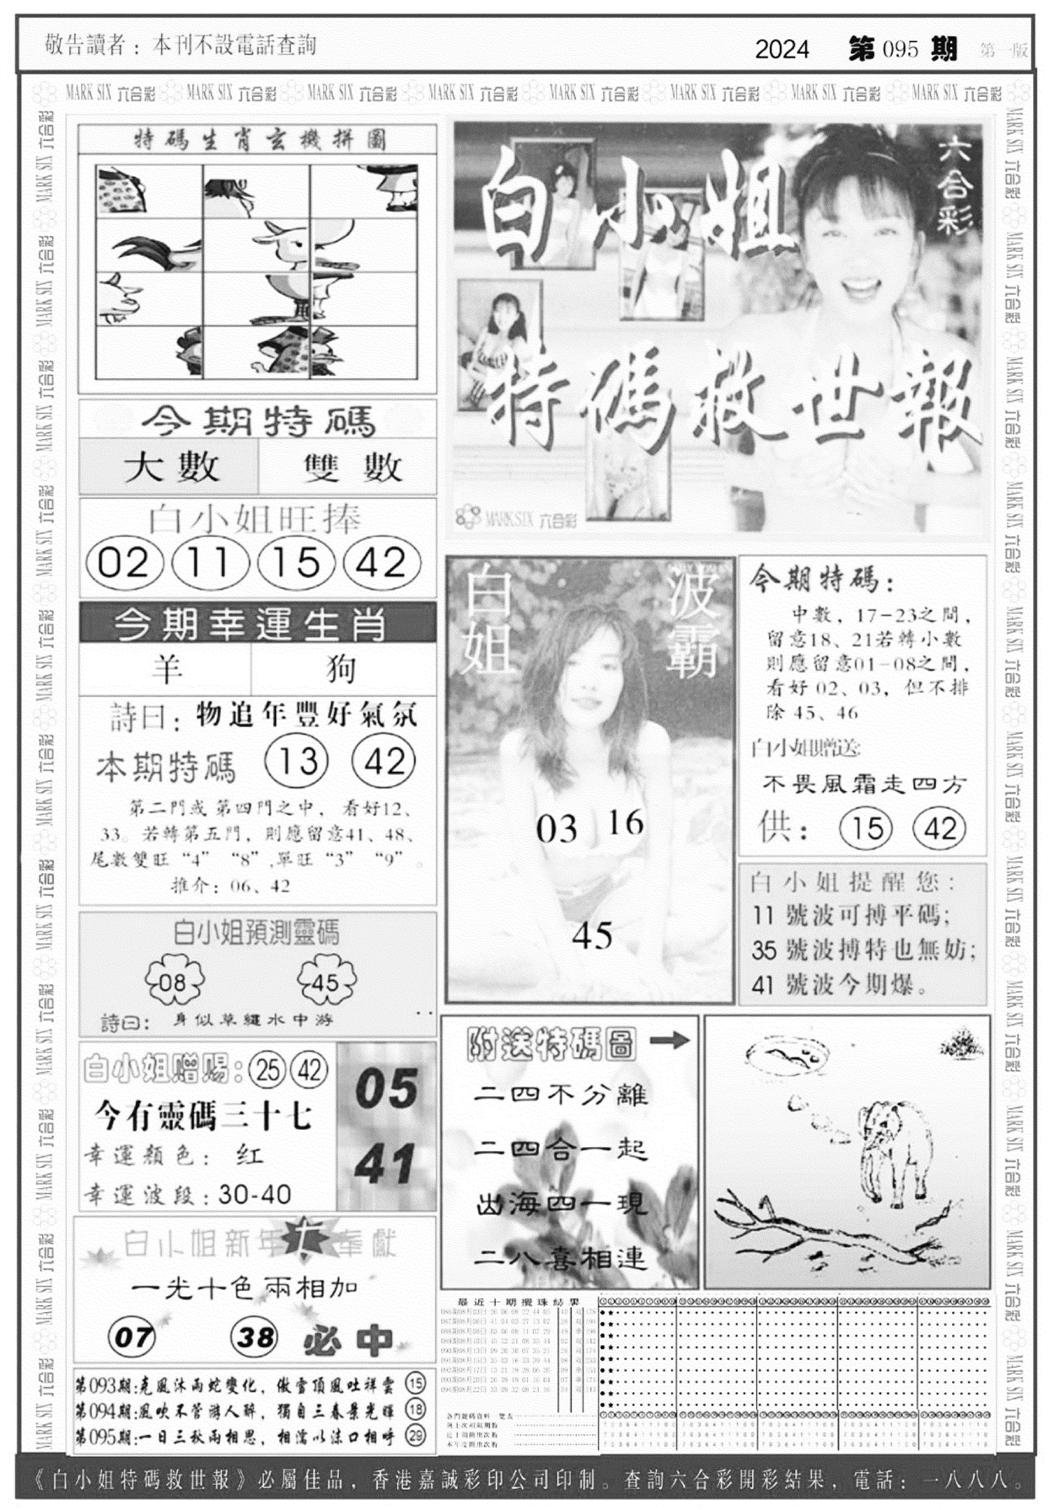 敬告讀者：本刊不設電話查詢
2024 第095期 第一版
MARK SIX 六合彩 MARK SIX 六合彩 MARK SIX 六合彩 MARK SIX 六合彩 MARK SIX 六合彩 MARK SIX 六合彩 MARK SIX 六合彩 MARK SIX 六合彩
特碼生肖玄機拼圖
今期特碼
大數 雙數
白小姐旺捧
02 11 15 42
今期幸運生肖
羊 狗
詩曰：物追年豐好氣氛
本期特碼 13 42
第二門或第四門之中，看好12、
33。若轉第五門，則應留意41、48、
尾數雙旺“4”“8”,單旺“3”“9”。
推介：06、42
白小姐預測靈碼
08 45
詩曰：身似草繩水中游
白小姐贈賜：25 42
今有靈碼三十七
幸運顏色：红
幸運波段：30-40
05
41
白小姐新年大奉獻
一光十色兩相加
07 38 必中
第093期:克風沐雨蛇變化，傲雪頂風吐祥雲 15
第094期:風吹不管游人醉，獨自三春景光暉 18
第095期:一日三秋兩相思，相濡以沫口相呼 29
白小姐
六合彩
特碼救世報
MARK SIX 六合彩
白姐
波霸
03 16
45
今期特碼：
中數，17-23之間，
留意18、21若轉小數
則應留意01-08之間，
看好02、03，但不排
除45、46
白小姐贈送:
不畏風霜走四方
供：15 42
白小姐提醒您：
11 號波可搏平碼;
35 號波搏特也無妨;
41 號波今期爆。
附送特碼圖
二四不分離
二四合一起
出海四一現
二八喜相連
最近十期攪珠結果
《白小姐特碼救世報》必屬佳品，香港嘉誠彩印公司印制。查詢六合彩開彩結果，電話：一八八八。